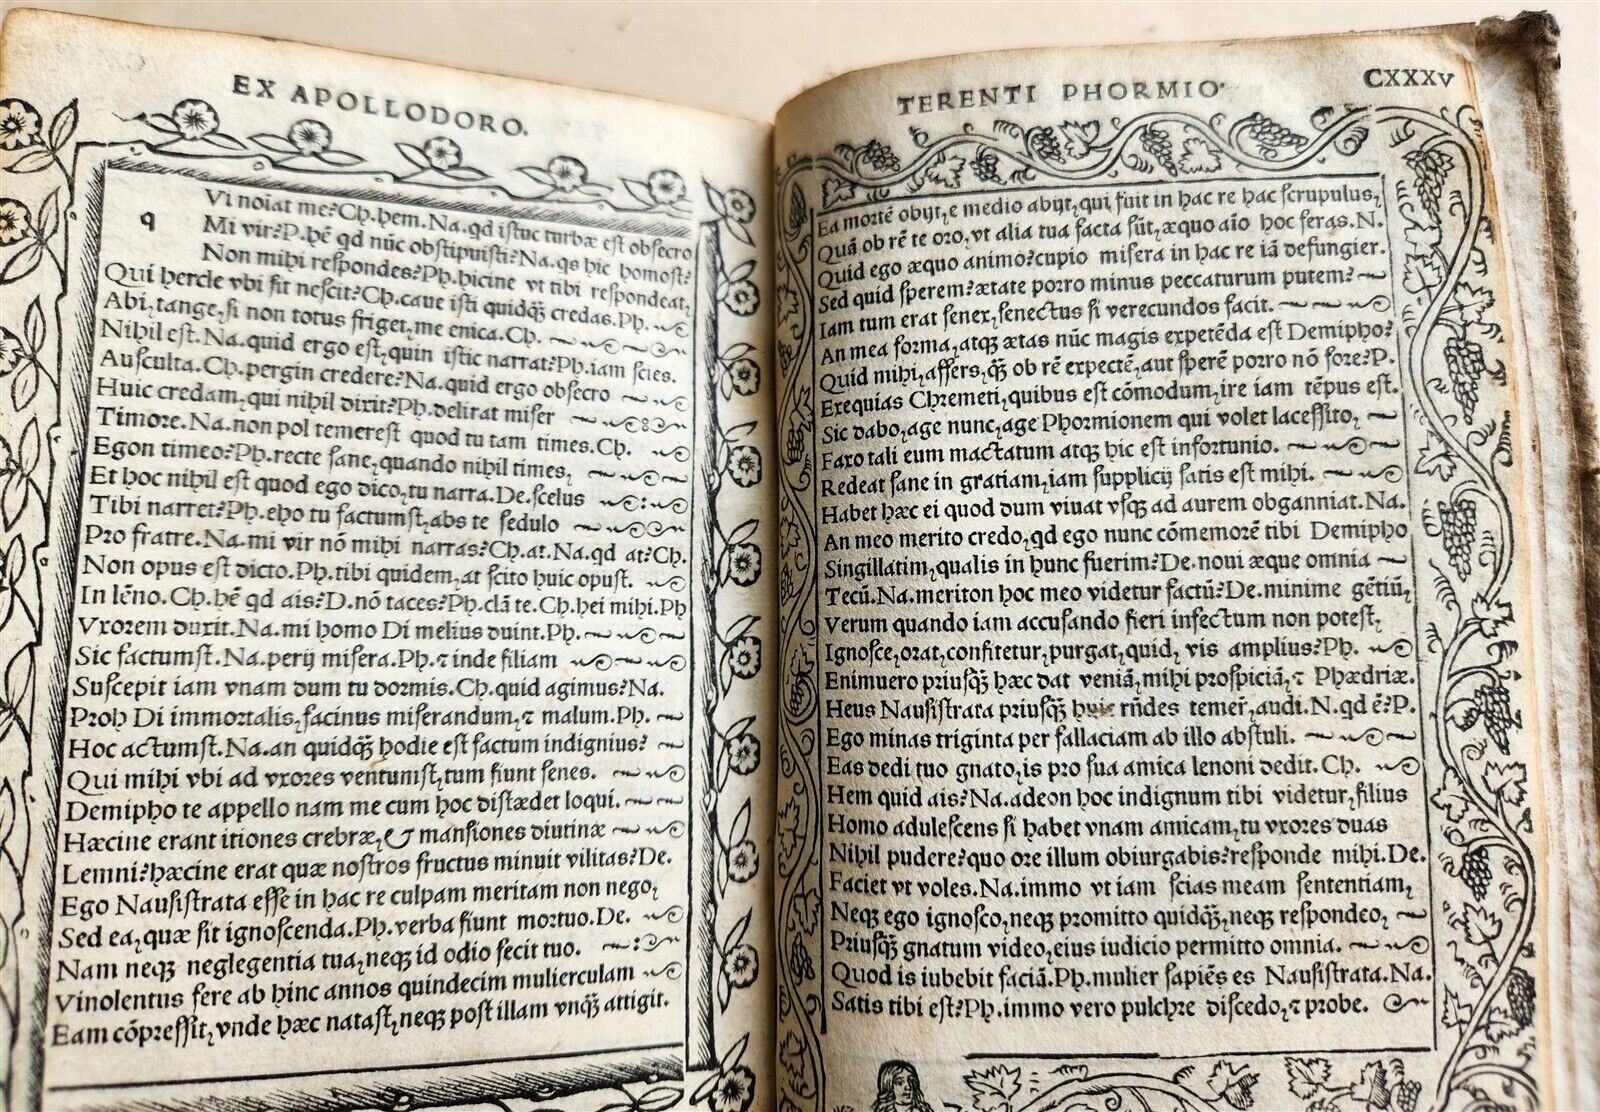 EX APOLLODORO.
q
Vi noiat me?Ch.hem.Na.qd istuc turbæ est obsecro
Mi vir?P.hẽ qd nũc obstipuisti?Na.qs hic homost?
Non mihi respondes?Ph.hicine vt tibi respondeat,
Qui hercle vbi sit nescit?Ch.caue isti quidq̃ credas.Ph.
Abi,tange,si non totus friget,me enica.Ch.
Nihil est.Na.quid ergo est,quin istic narrat?Ph.iam scies.
Ausculta.Ch.pergin credere?Na.quid ergo obsecro
Huic credam,qui nihil dixit?Ph.delirat miser
Timore.Na.non pol temerest quod tu tam times.Ch.
Egon timeo?Ph.recte sane,quando nihil times,
Et hoc nihil est quod ego dico,tu narra.De.scelus
Tibi narret?Ph.eho tu factumst,abs te sedulo
Pro fratre.Na.mi vir nõ mihi narras?Ch.at.Na.qd at?Ch.
Non opus est dicto.Ph.tibi quidem,at scito huic opust.
In lẽno.Ch.hẽ qd ais?D.nõ taces?Ph.clã te.Ch.hei mihi.Ph
Vxorem duxit.Na.mi homo Di melius duint.Ph.
Sic factumst.Na.perij misera.Ph.⁊ inde filiam
Suscepit iam vnam dum tu dormis.Ch.quid agimus?Na.
Proh Di immortalis,facinus miserandum,⁊ malum.Ph.
Hoc actumst.Na.an quidq̃ hodie est factum indignius?
Qui mihi vbi ad vxores ventumst,tum fiunt senes.
Demipho te appello nam me cum hoc distædet loqui.
Hæcine erant itiones crebræ,& mansiones diutinæ
Lemni?hæcine erat quæ nostros fructus minuit vilitas?De.
Ego Nausistrata esse in hac re culpam meritam non nego,
Sed ea,quæ sit ignoscenda.Ph.verba fiunt mortuo.De.
Nam neqȝ neglegentia tua,neqȝ id odio fecit tuo.
Vinolentus fere ab hinc annos quindecim mulierculam
Eam cõpressit,vnde hæc natast,neqȝ post illam vnq̃ attigit.
TERENTI PHORMIO
CXXXV
Ea mortẽ obijt,e medio abijt,qui fuit in hac re hac scrupulus,
Quã ob rẽ te oro,vt alia tua facta sũt,æquo aĩo hoc feras.N.
Quid ego æquo animo?cupio misera in hac re iã defungier.
Sed quid sperem?ætate porro minus peccaturum putem?
Iam tum erat senex,senectus si verecundos facit.
An mea forma,atqȝ ætas nũc magis expetẽda est Demipho?
Quid mihi,affers,q̃ ob rẽ expectẽ,aut sperẽ porro nõ fore?P.
Exequias Chremeti,quibus est cõmodum,ire iam tẽpus est.
Sic dabo,age nunc,age Phormionem qui volet lacessito,
Faxo tali eum mactatum atqȝ hic est infortunio.
Redeat sane in gratiam,iam supplicij satis est mihi.
Habet hæc ei quod dum viuat vsqȝ ad aurem obganniat.Na.
An meo merito credo,qd ego nunc cõmemorẽ tibi Demipho
Singillatim,qualis in hunc fuerim?De.noui æque omnia
Tecũ.Na.meriton hoc meo videtur factũ?De.minime gẽtiũ,
Verum quando iam accusando fieri infectum non potest,
Ignosce,orat,confitetur,purgat,quid, vis amplius?Ph.
Enimuero priusq̃ hæc dat veniã,mihi prospiciã,⁊ Phædriæ.
Heus Nausistrata priusq̃ huic rñdes temer̃,audi.N.qd ẽ?P.
Ego minas triginta per fallaciam ab illo abstuli.
Eas dedi tuo gnato,is pro sua amica lenoni dedit.Ch.
Hem quid ais?Na.adeon hoc indignum tibi videtur,filius
Homo adulescens si habet vnam amicam,tu vxores duas
Nihil pudere?quo ore illum obiurgabis?responde mihi.De.
Faciet vt voles.Na.immo vt iam scias meam sententiam,
Neqȝ ego ignosco,neqȝ promitto quidq̃,neqȝ respondeo,
Priusq̃ gnatum video,eius iudicio permitto omnia.
Quod is iubebit faciã.Ph.mulier sapiẽs es Nausistrata.Na.
Satis tibi est?Ph.immo vero pulchre discedo,⁊ probe.